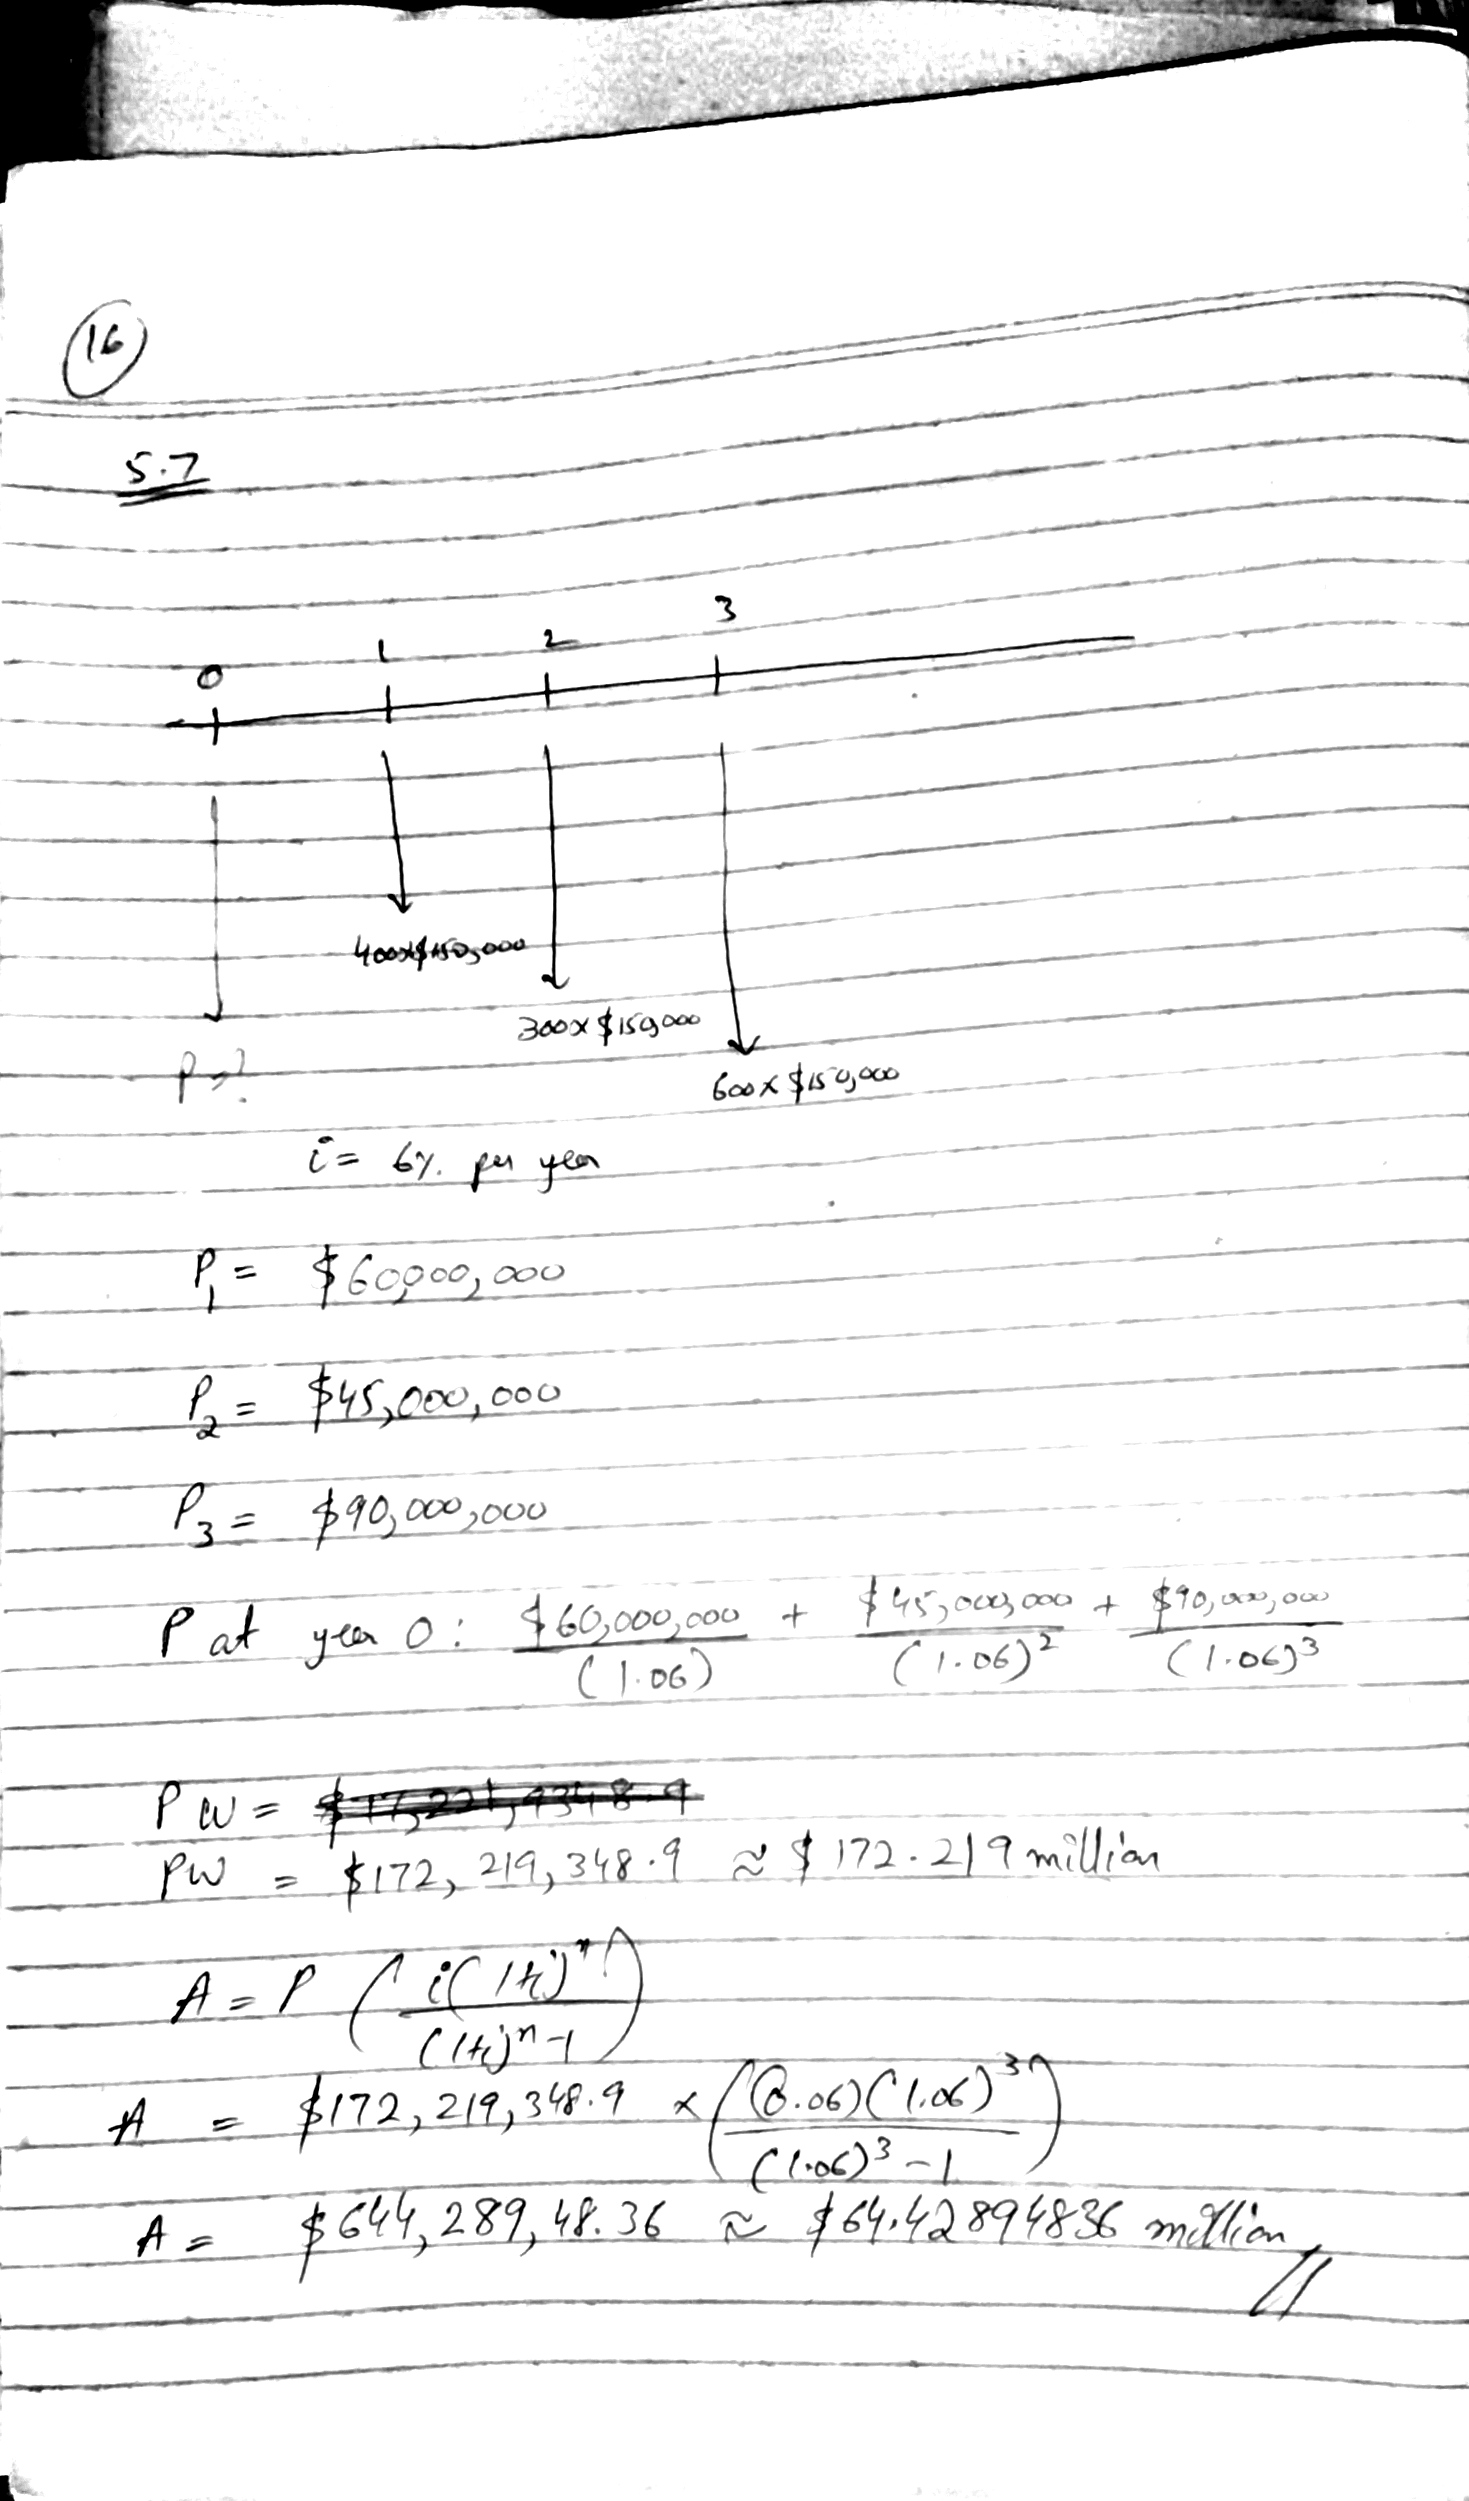 16
5.7
0 1 2 3
400x$150,000
300x$150,000
P=?
600x$150,000
i= 6% per year
P1= $60,000,000
P2= $45,000,000
P3= $90,000,000
P at year 0: $60,000,000/(1.06) + $45,000,000/(1.06)^2 + $90,000,000/(1.06)^3
PW=
PW = $172,219,348.9 ≈ $172.219 million
A=P (i(1+i)^n/(1+i)^n-1)
A = $172,219,348.9 x ((0.06)(1.06)^3/(1.06)^3-1)
A= $644,289,48.36 ≈ $64.42894836 million